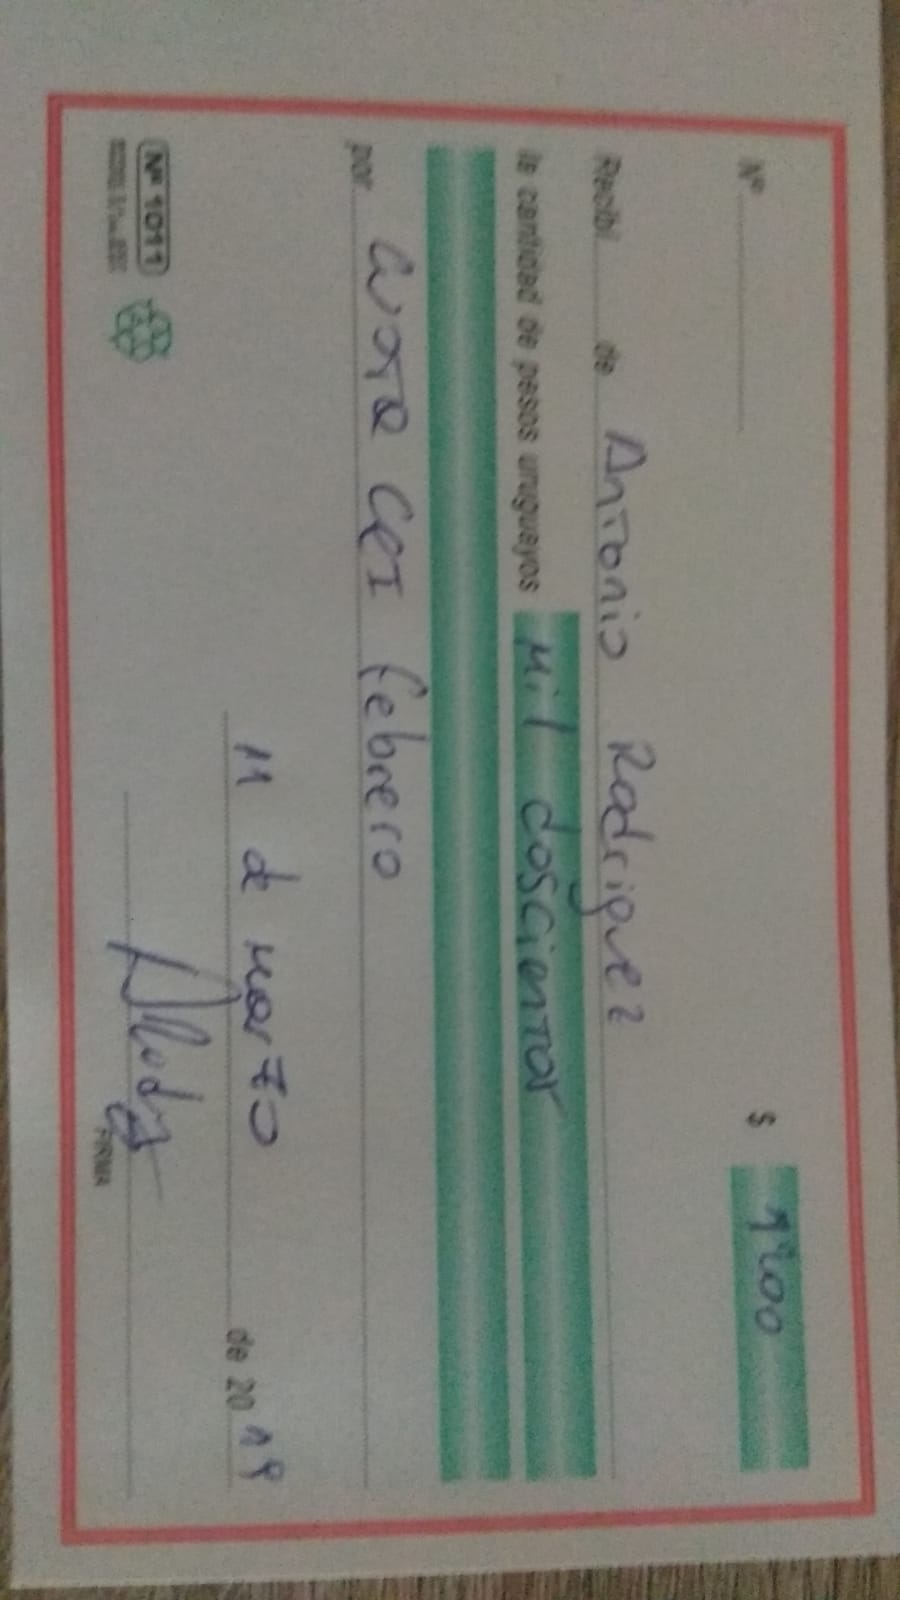 Nº
$ 1200
Recibí de Antonio Rodriguez
la cantidad de pesos uruguayos mil doscientos
por cuota CCI febrero
11 de marzo de 2019
Nº 1011
FIRMA